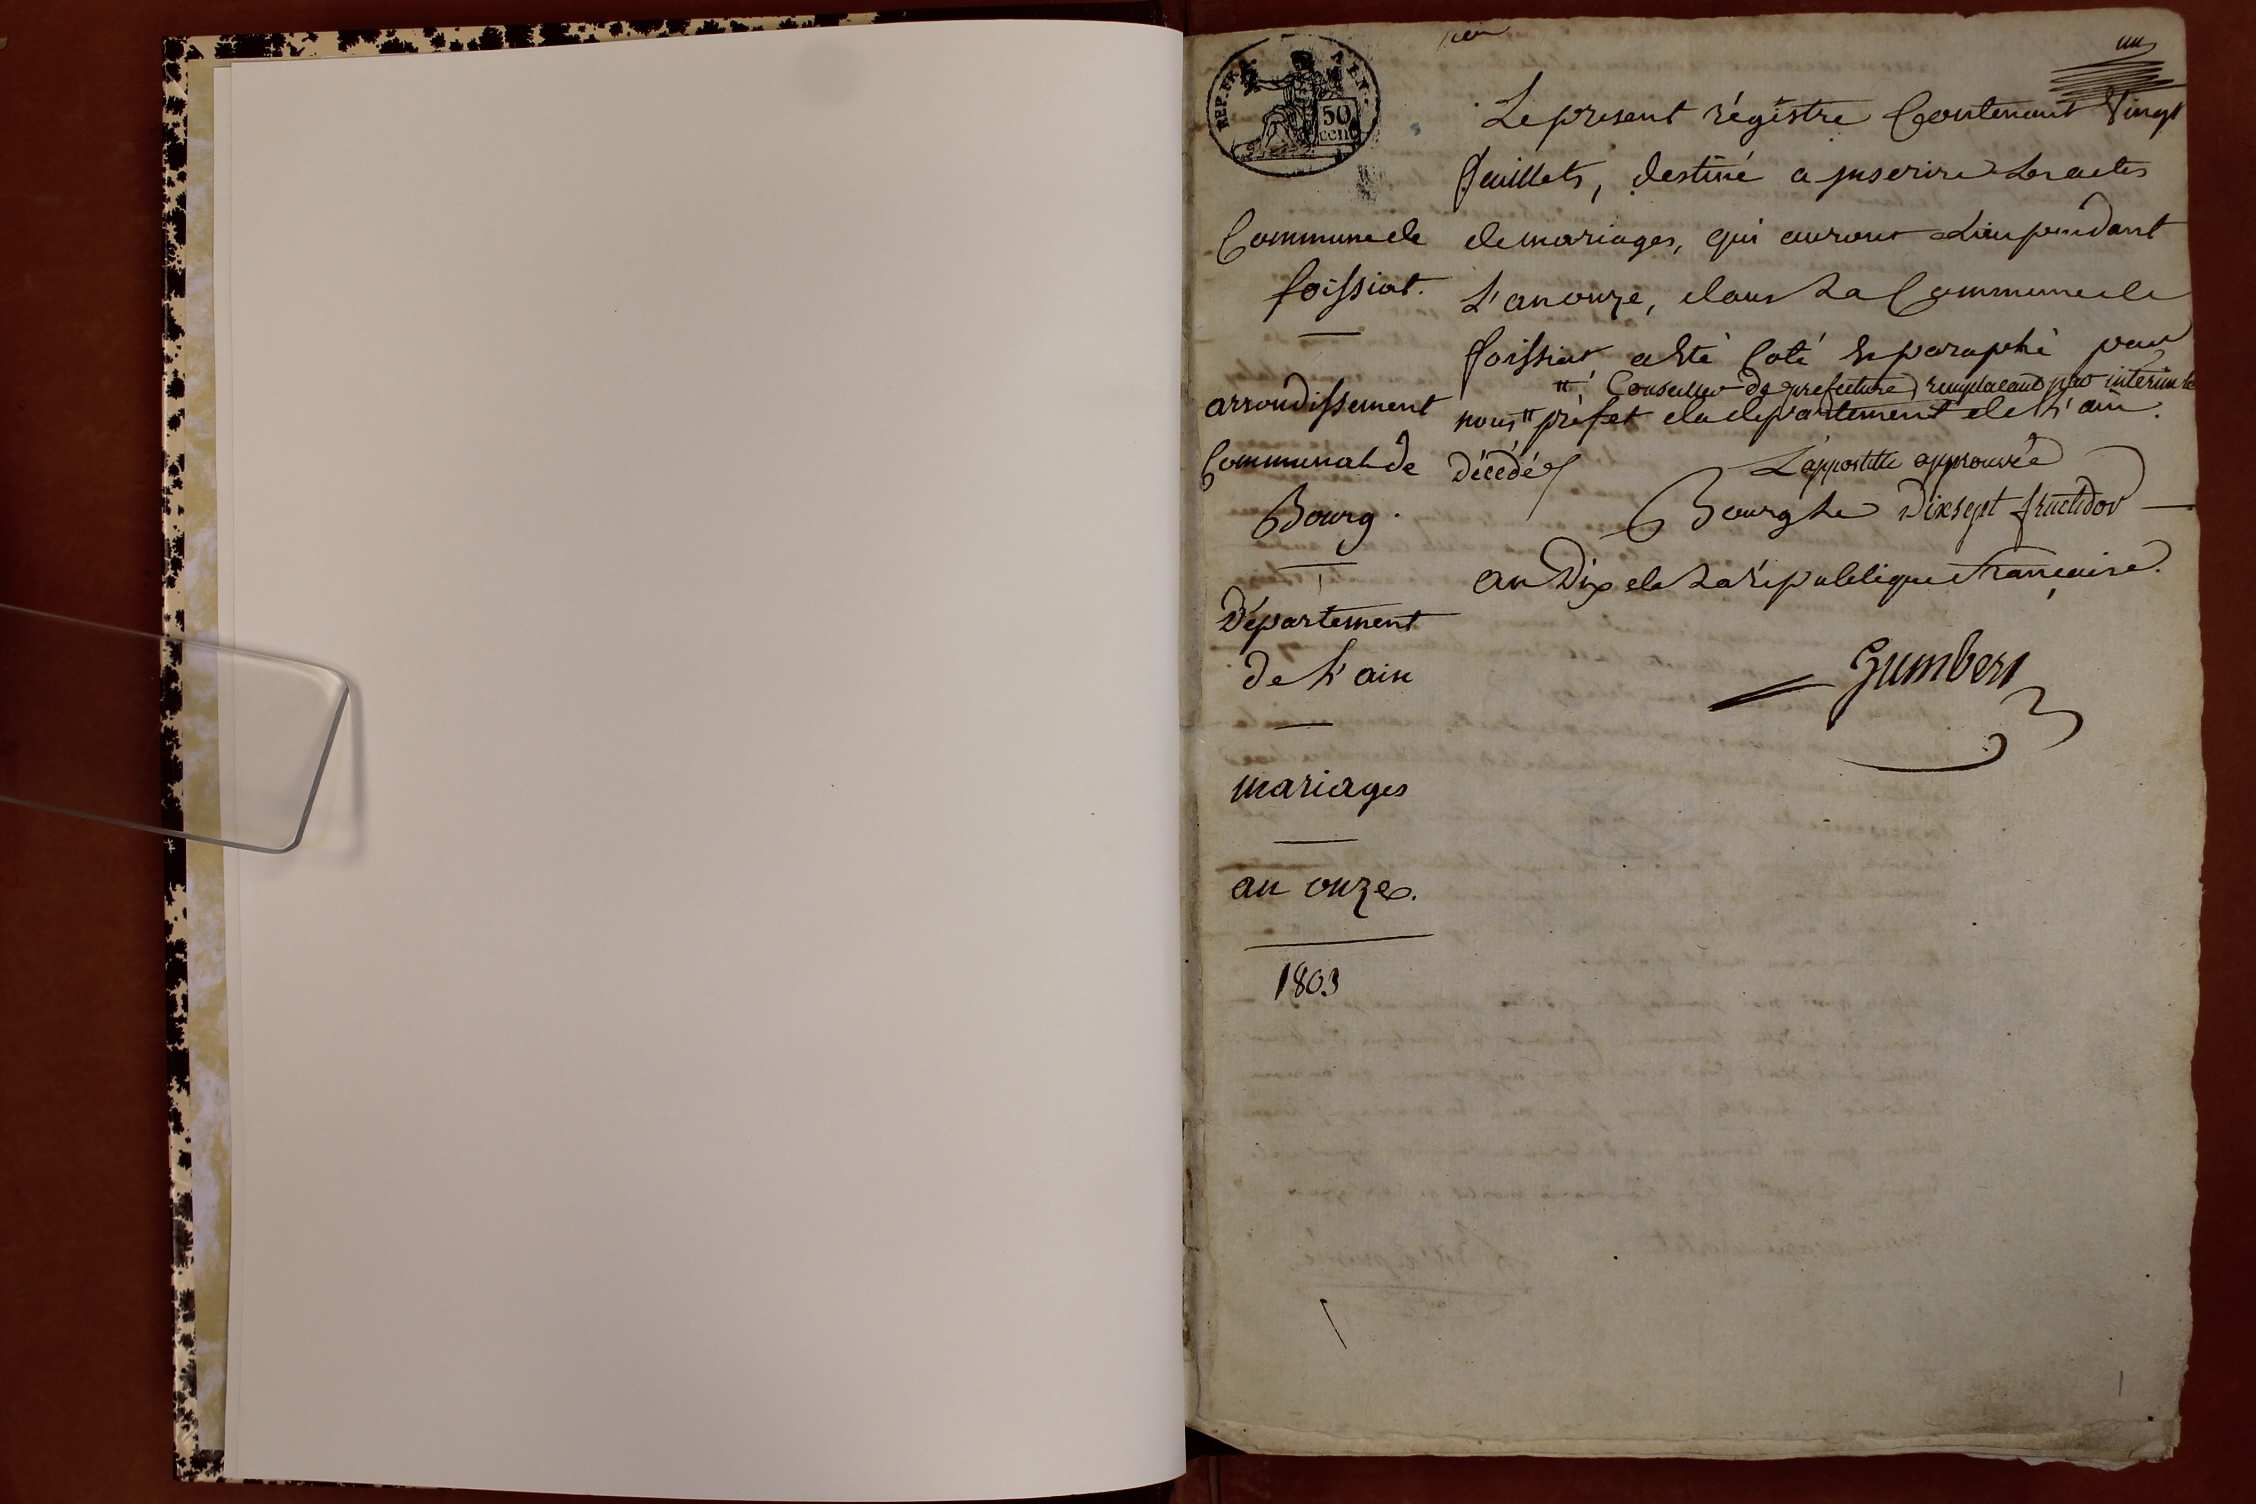 un
REP. FRA.
50
cent
Le present régistre Contenant Vingt
feuillets, destiné a jnscrire Les actes
de mariages, qui auront Lieu pendant
L'an onze, dans La Commune de
foissiat a Eté Coté Et paraphé par
" Conseiller de prefecture remplacant par interim le
nous " préfet du département de L'ain.
décédé
L'appostille approuvée
Bourg Le Dixsept fructidor
an Dix de La république française.
Gumbert
Commune de
foissiat.
arrondissement
Communal de
Bourg.
Département
de L'ain
mariages
an onze.
1803